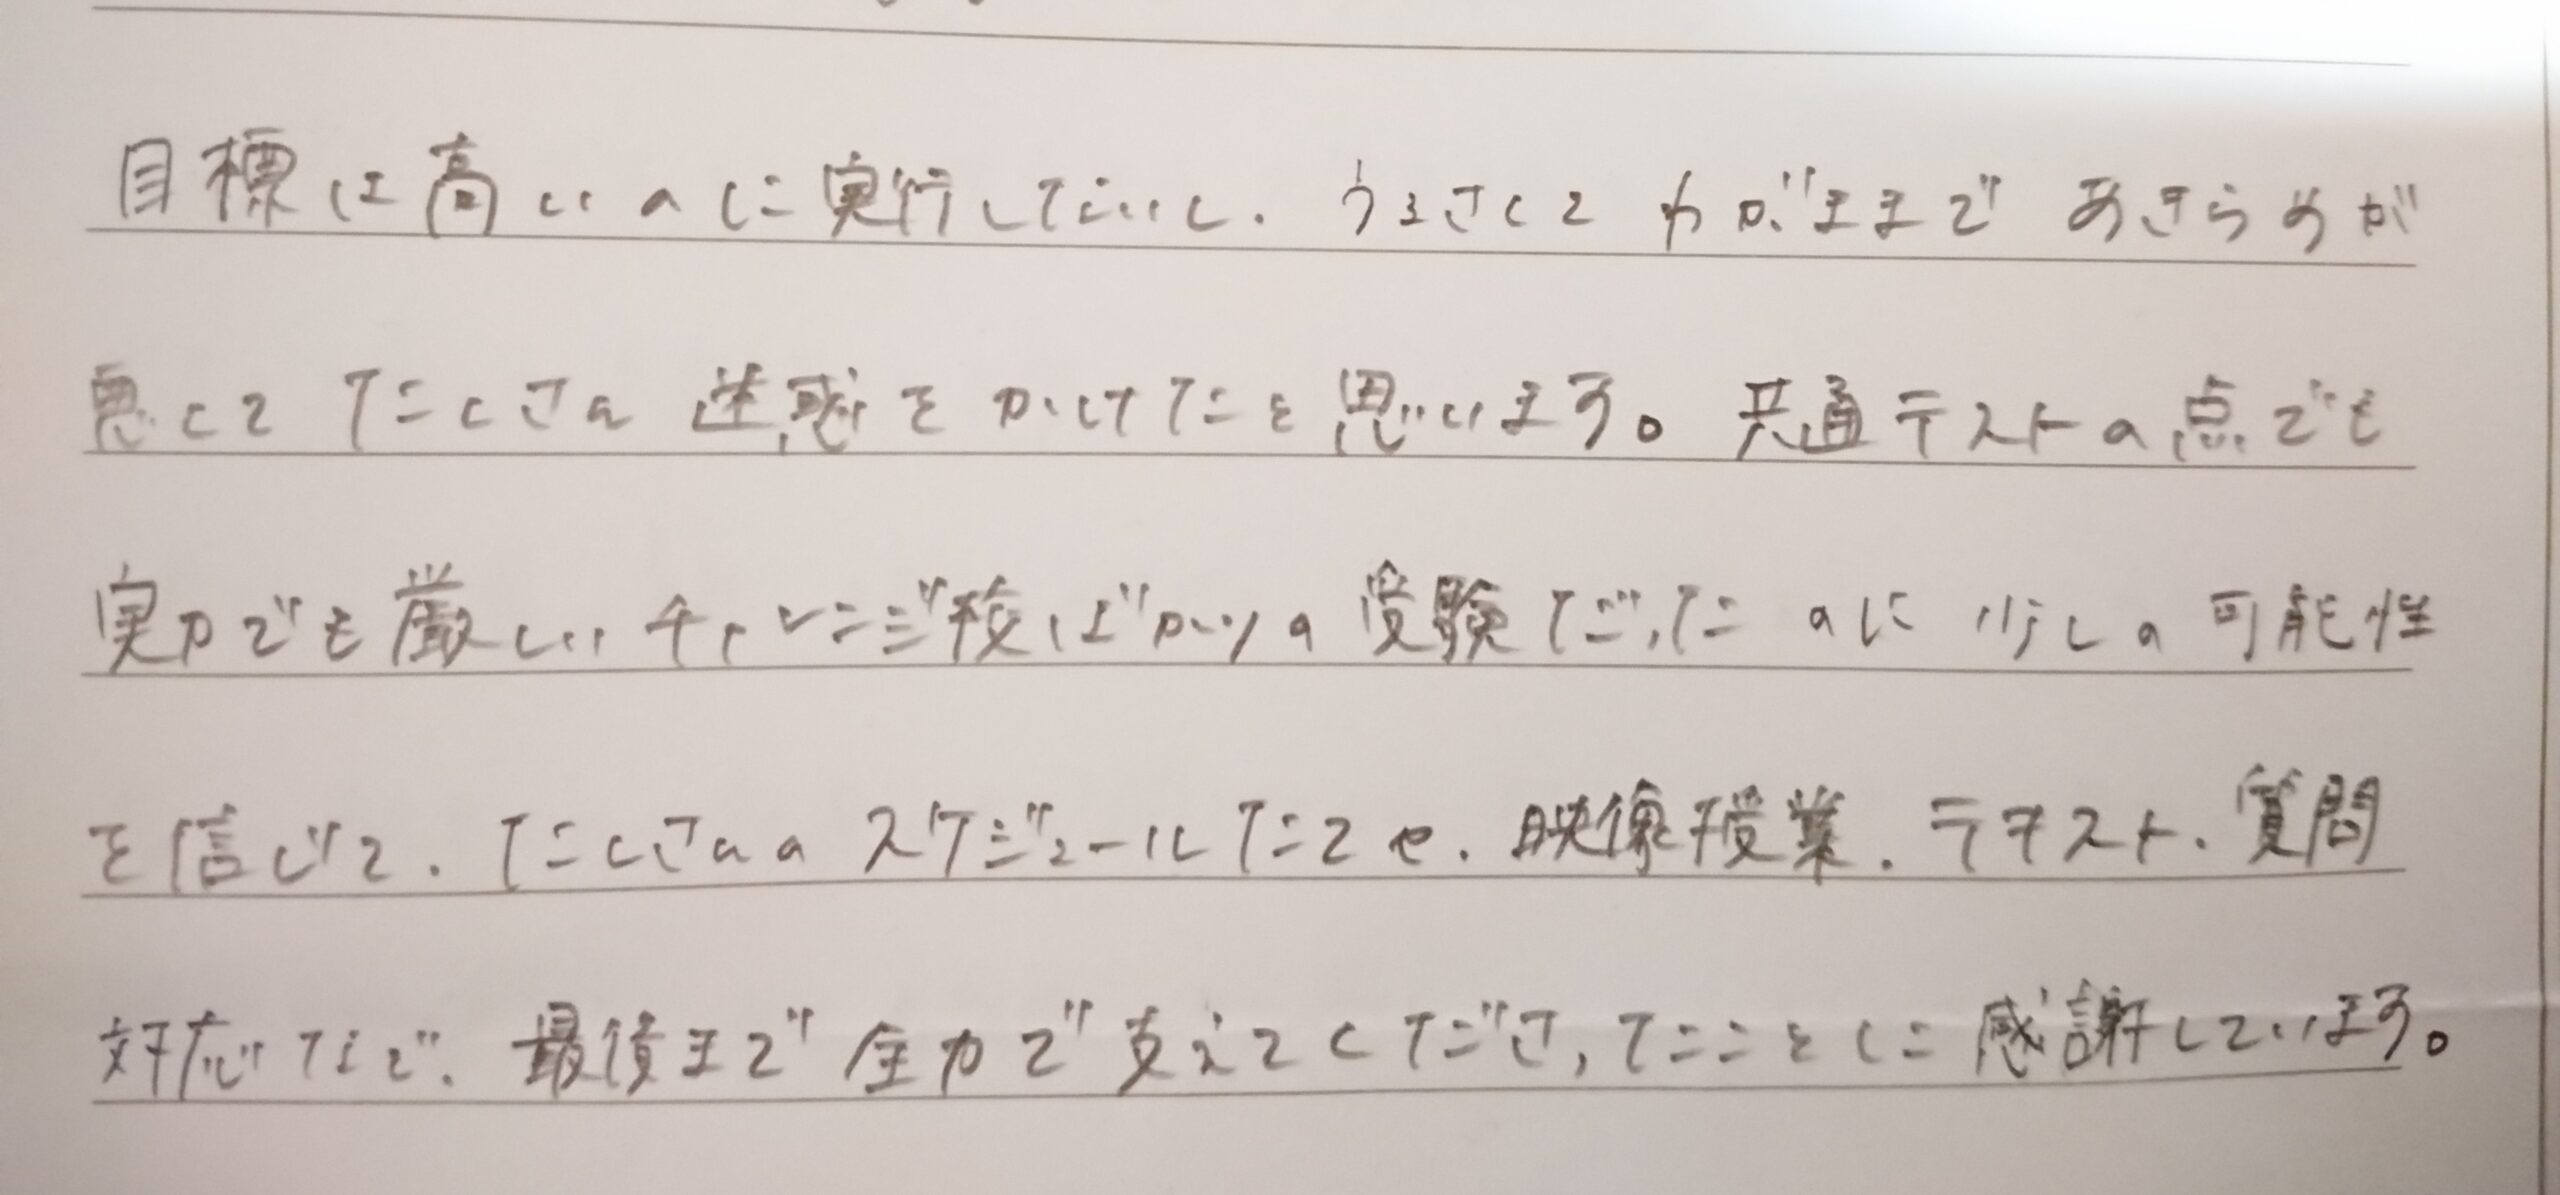 目標は高いのに実行してないし、うるさくてわがままであきらめが
悪くてたくさん迷惑をかけたと思います。共通テストの点でも
実力でも厳しいチャレンジ校ばかりの受験だったのに少しの可能性
を信じて、たくさんのスケジュールたてや、映像授業、テキスト、質問
対応など、最後まで全力で支えてくださったことに感謝しています。